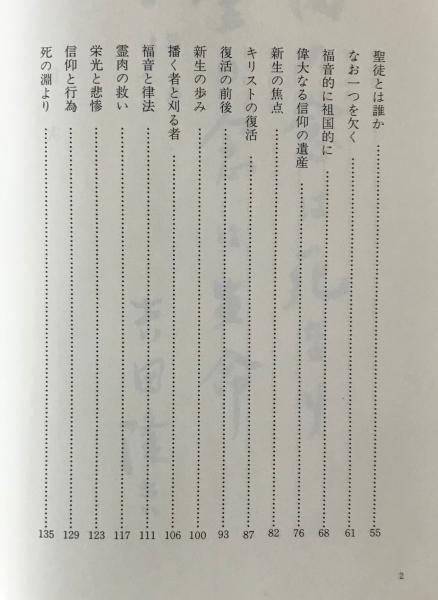 聖徒とは誰か……55
なお一つを欠く……61
福音的に祖国的に……68
偉大なる信仰の遺産……76
新生の焦点……82
キリストの復活……87
復活の前後……93
新生の歩み……100
播く者と刈る者……106
福音と律法……111
霊肉の救い……117
栄光と悲惨……123
信仰と行為……129
死の淵より……135
2